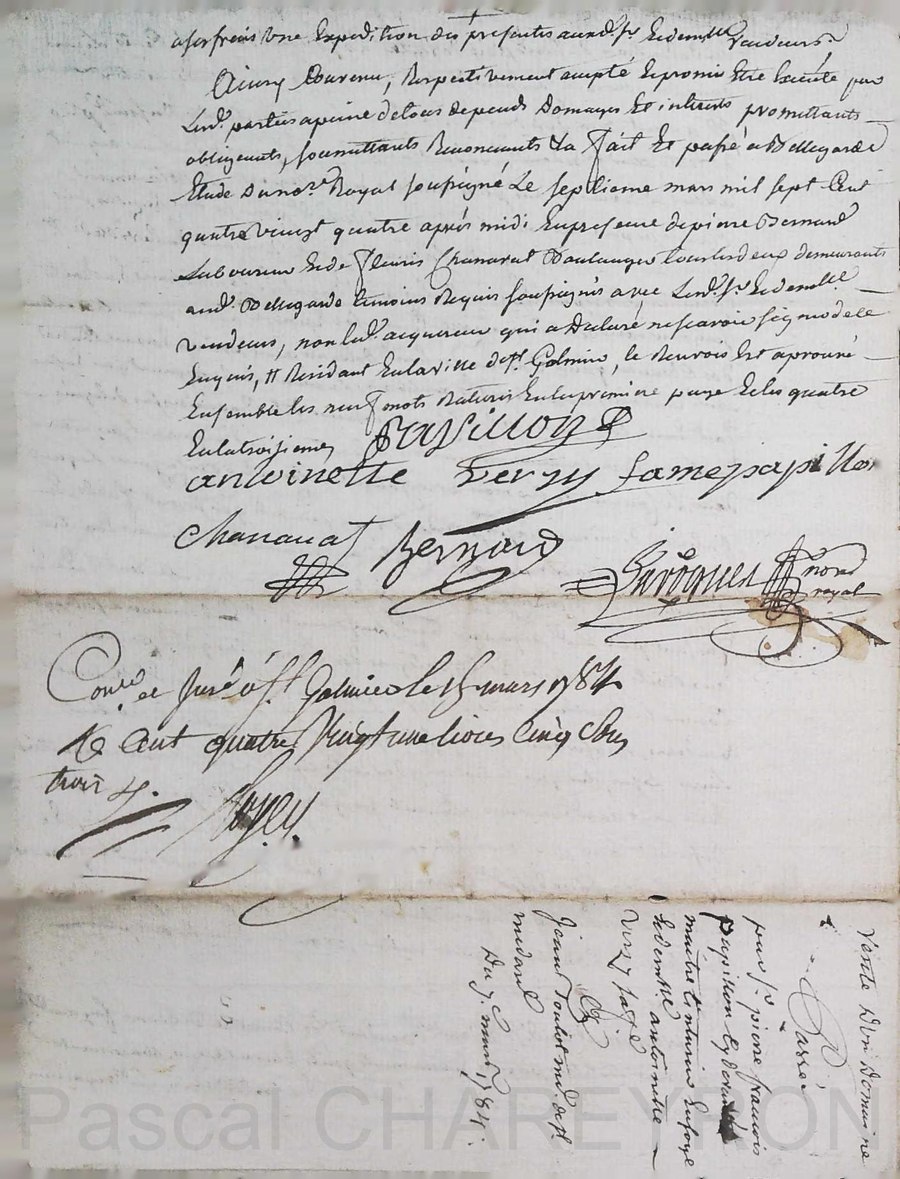 a ses frais une Expedition des presentes auxd. sr. et demelle vendeurs
Ainsy Convenu, Respectivement accepté Et promis Etre Executé par
Lesd. parties a peine de tous depends Domages Et interets promettants
obligeants, soumettants Renonceants &a fait Et passé a Bellegarde
Etude du nore. Royal soussigné Le septieme mars mil sept Cent
quatre vingt quatre après midi En presence de pierre Bernard
Laboureur Et de fleuris Chanavat Boulanger tous les deux demeurants
aud. Bellegarde temoins Requis soussignés avec Lesd. sr. Et demelle
vendeurs, non led. acquereur qui a declaré ne scavoir signer de ce
Enquis, Et Residant En la ville de st. Galmier, le Renvois Est aprouvé
Ensemble les neuf mots Raturés En la premiere page Et les quatre
En la troisieme
Papillon
antoinette verzy fame papillon
Chanavat Bernard
Laroque nore royal
Conlé et Juré à st. Galmier le 15 mars 1784
R Cent quatre Vingt une livres Cinq sous
trois d.
Royer
Vente d'un Domaine
Passée
par sr. pierre francois
papillon Bourgeois
maitre
Et demelle antoinette
verzy
a
Jean md. de st.
medard
Du 7 mars 1784.
Pascal CHAREYRON